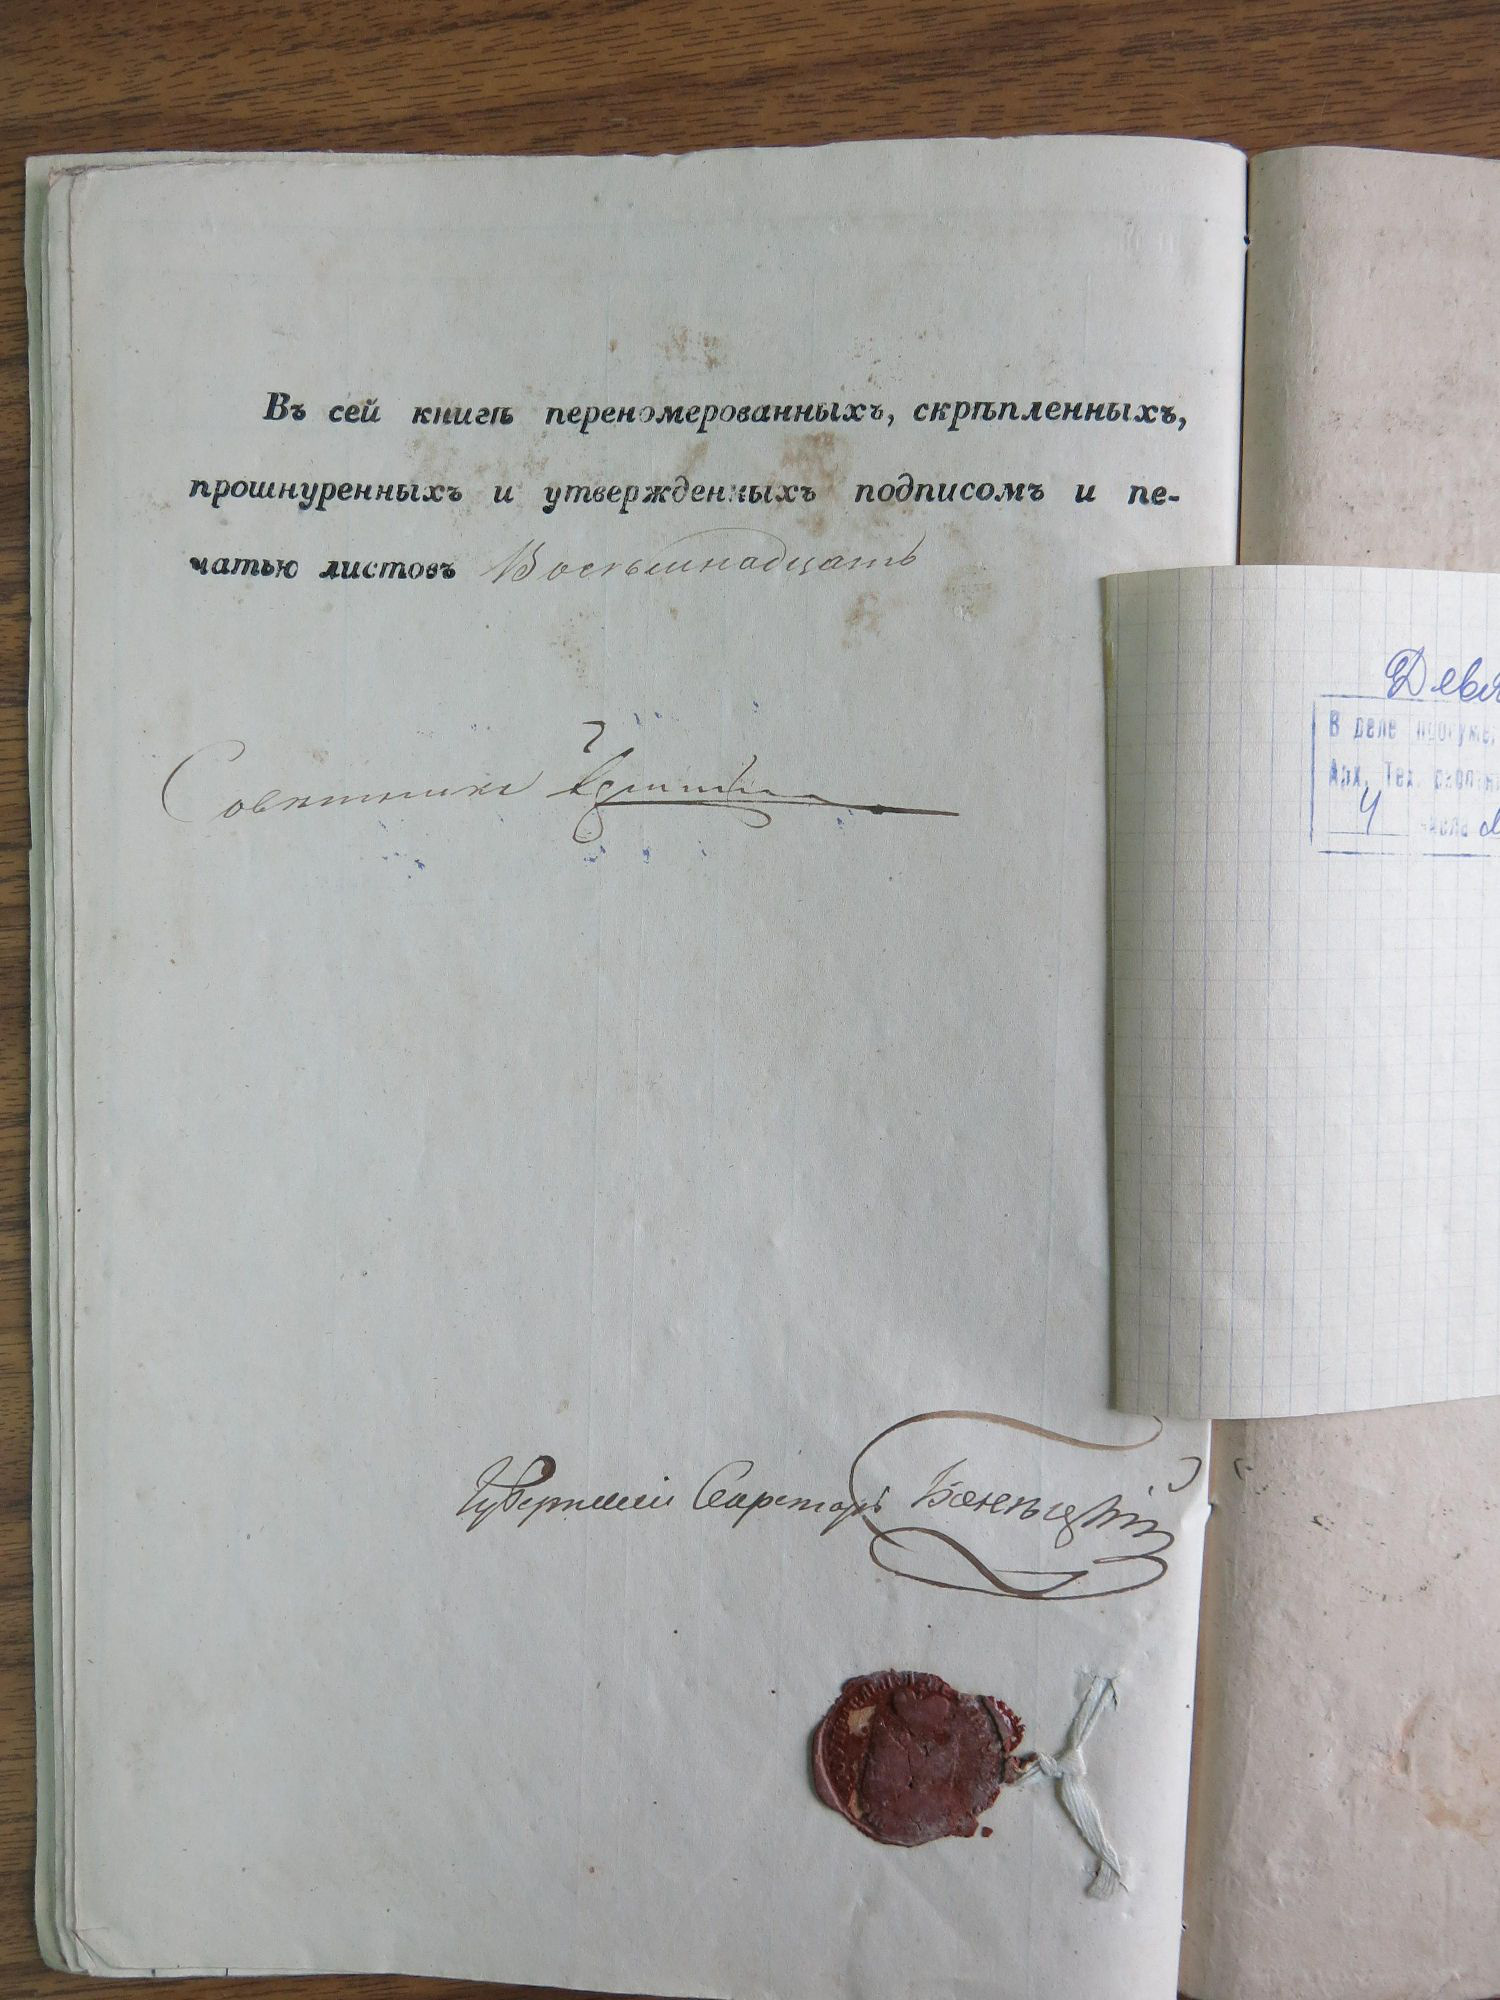 Въ сей книгѣ переномерованныхъ, скрѣпленныхъ,
прошнуренныхъ и утвержденныхъ подписомъ и пе-
чатью листовъ Восемьнадцать
Совѣтникъ
Губернскій Секретарь
Девя
В деле
Арх. Тех.
4 числа